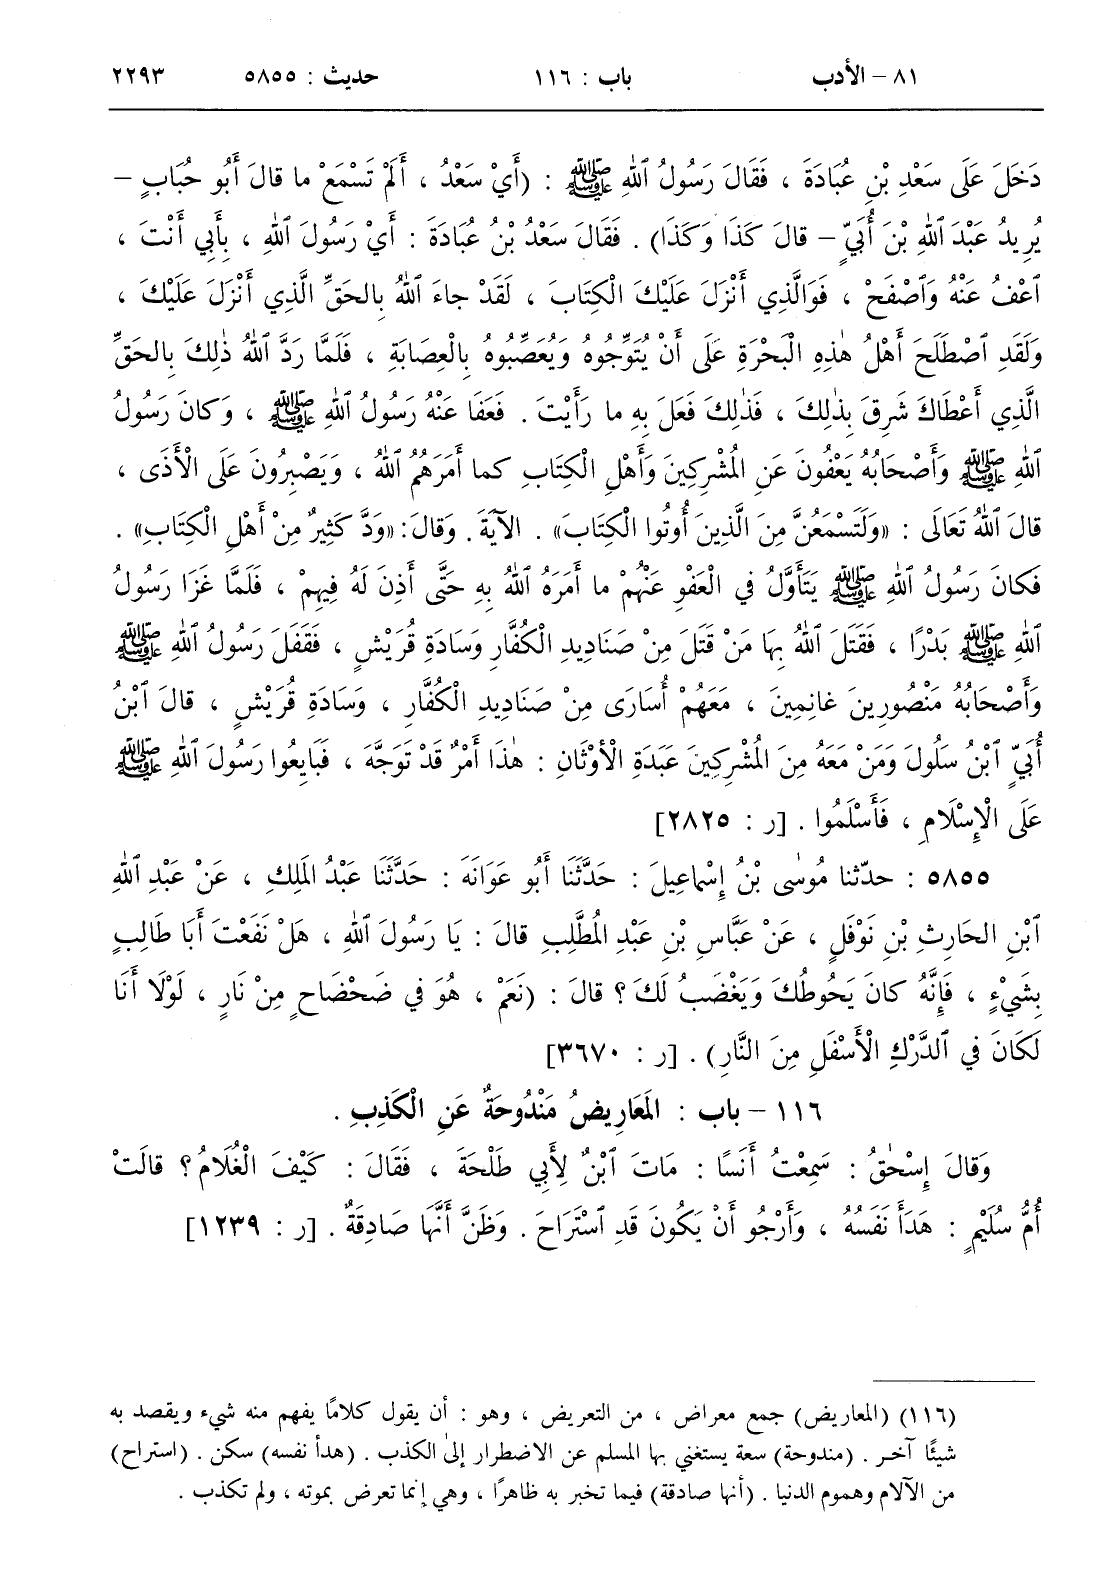 ٨١ – الأدب    باب : ١١٦    حديث : ٥٨٥٥    ٢٢٩٣
دَخَلَ عَلَى سَعْدِ بْنِ عُبَادَةَ ، فَقَالَ رَسُولُ ٱللهِ ﷺ : (أَيْ سَعْدُ ، أَلَمْ تَسْمَعْ ما قالَ أَبُو حُبَابٍ –
يُرِيدُ عَبْدَ ٱللهِ بْنَ أُبَيٍّ – قالَ كَذَا وَكَذَا) . فَقَالَ سَعْدُ بْنُ عُبَادَةَ : أَيْ رَسُولَ ٱللهِ ، بِأَبِي أَنْتَ ،
ٱعْفُ عَنْهُ وَٱصْفَحْ ، فَوَالَّذِي أَنْزَلَ عَلَيْكَ الْكِتَابَ ، لَقَدْ جاءَ ٱللهُ بِالحَقِّ الَّذِي أَنْزَلَ عَلَيْكَ ،
وَلَقَدِ ٱصْطَلَحَ أَهْلُ هٰذِهِ الْبَحْرَةِ عَلَى أَنْ يُتَوِّجُوهُ وَيُعَصِّبُوهُ بِالْعِصَابَةِ ، فَلَمَّا رَدَّ ٱللهُ ذٰلِكَ بِالحَقِّ
الَّذِي أَعْطَاكَ شَرِقَ بِذٰلِكَ ، فَذٰلِكَ فَعَلَ بِهِ ما رَأَيْتَ . فَعَفَا عَنْهُ رَسُولُ ٱللهِ ﷺ ، وَكانَ رَسُولُ
ٱللهِ ﷺ وَأَصْحَابُهُ يَعْفُونَ عَنِ المُشْرِكِينَ وَأَهْلِ الْكِتَابِ كما أَمَرَهُمُ ٱللهُ ، وَيَصْبِرُونَ عَلَى الْأَذَى ،
قالَ ٱللهُ تَعَالَى : «وَلَتَسْمَعُنَّ مِنَ الَّذِينَ أُوتُوا الْكِتَابَ» . الآيَةَ . وَقالَ: «وَدَّ كَثِيرٌ مِنْ أَهْلِ الْكِتَابِ» .
فَكانَ رَسُولُ ٱللهِ ﷺ يَتَأَوَّلُ فِي الْعَفْوِ عَنْهُمْ ما أَمَرَهُ ٱللهُ بِهِ حَتَّى أَذِنَ لَهُ فِيهِمْ ، فَلَمَّا غَزَا رَسُولُ
ٱللهِ ﷺ بَدْرًا ، فَقَتَلَ ٱللهُ بِهَا مَنْ قَتَلَ مِنْ صَنَادِيدِ الْكُفَّارِ وَسَادَةِ قُرَيْشٍ ، فَقَفَلَ رَسُولُ ٱللهِ ﷺ
وَأَصْحَابُهُ مَنْصُورِينَ غانِمِينَ ، مَعَهُمْ أُسَارَى مِنْ صَنَادِيدِ الْكُفَّارِ ، وَسَادَةِ قُرَيْشٍ ، قالَ ٱبْنُ
أُبَيٍّ ٱبْنُ سَلُولَ وَمَنْ مَعَهُ مِنَ المُشْرِكِينَ عَبَدَةِ الْأَوْثَانِ : هٰذَا أَمْرٌ قَدْ تَوَجَّهَ ، فَبَايَعُوا رَسُولَ ٱللهِ ﷺ
عَلَى الْإِسْلَامِ ، فَأَسْلَمُوا . [ر : ٢٨٢٥]
٥٨٥٥ : حدّثنا مُوسٰى بْنُ إِسْماعِيلَ : حَدَّثَنَا أَبُو عَوَانَةَ : حَدَّثَنَا عَبْدُ المَلِكِ ، عَنْ عَبْدِ ٱللهِ
ٱبْنِ الحَارِثِ بْنِ نَوْفَلٍ ، عَنْ عَبَّاسِ بْنِ عَبْدِ المُطَّلِبِ قالَ : يَا رَسُولَ ٱللهِ ، هَلْ نَفَعْتَ أَبَا طَالِبٍ
بِشَيْءٍ ، فَإِنَّهُ كانَ يَحُوطُكَ وَيَغْضَبُ لَكَ ؟ قالَ : (نَعَمْ ، هُوَ في ضَحْضَاحٍ مِنْ نَارٍ ، لَوْلَا أَنَا
لَكَانَ في ٱلدَّرْكِ الْأَسْفَلِ مِنَ النَّارِ) . [ر : ٣٦٧٠]
١١٦ – باب : المَعَارِيضُ مَنْدُوحَةٌ عَنِ الْكَذِبِ .
وَقالَ إِسْحٰقُ : سَمِعْتُ أَنَسًا : مَاتَ ٱبْنٌ لِأَبِي طَلْحَةَ ، فَقَالَ : كَيْفَ الْغُلَامُ ؟ قالَتْ
أُمُّ سُلَيْمٍ : هَدَأَ نَفَسُهُ ، وَأَرْجُو أَنْ يَكُونَ قَدِ ٱسْتَرَاحَ . وَظَنَّ أَنَّهَا صَادِقَةٌ . [ر : ١٢٣٩]
(١١٦) (المعاريض) جمع معراض ، من التعريض ، وهو : أن يقول كلامًا يفهم منه شيء ويقصد به
شيئًا آخر . (مندوحة) سعة يستغني بها المسلم عن الاضطرار إلى الكذب . (هدأ نفسه) سكن . (استراح)
من الآلام وهموم الدنيا . (أنها صادقة) فيما تخبر به ظاهرًا ، وهي إنما تعرض بموته ، ولم تكذب .